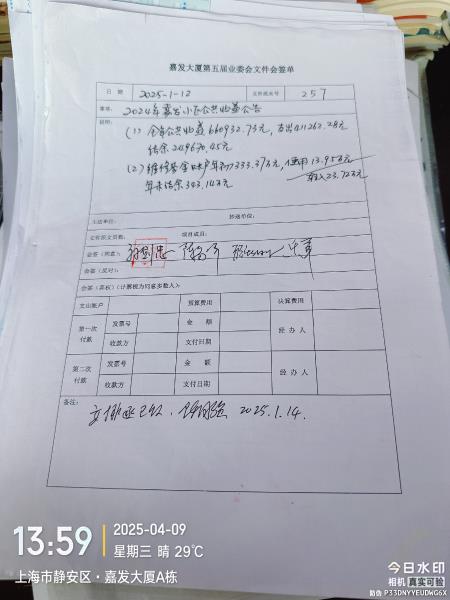 嘉发大厦第五届业委会文件会签单
日期 2025-1-12 文件流水号 257
事项: 2024年嘉发小区公共收益公告
说明: (1) 全年公共收益660932.73元, 支出411262.28元
结余249670.45元
(2) 维修基金账户年初333.37万元, 使用13.95万元
年末结余343.14万元 转入23.72万元
主送单位: 抄送单位:
文件原文页数: 项目成员:
会签(同意):
会签(反对):
会签(弃权)(计票视为同意多数人):
支出账户 预算费用 决算费用
第一次付款 发票号 金额 经办人
收款方 支付日期
第二次付款 发票号 金额 经办人
收款方 支付日期
备注:
2025.1.14.
13:59 2025-04-09
星期三 晴 29℃
上海市静安区·嘉发大厦A栋
今日水印
相机 真实可验
防伪 P33DNYYEUDWG6X